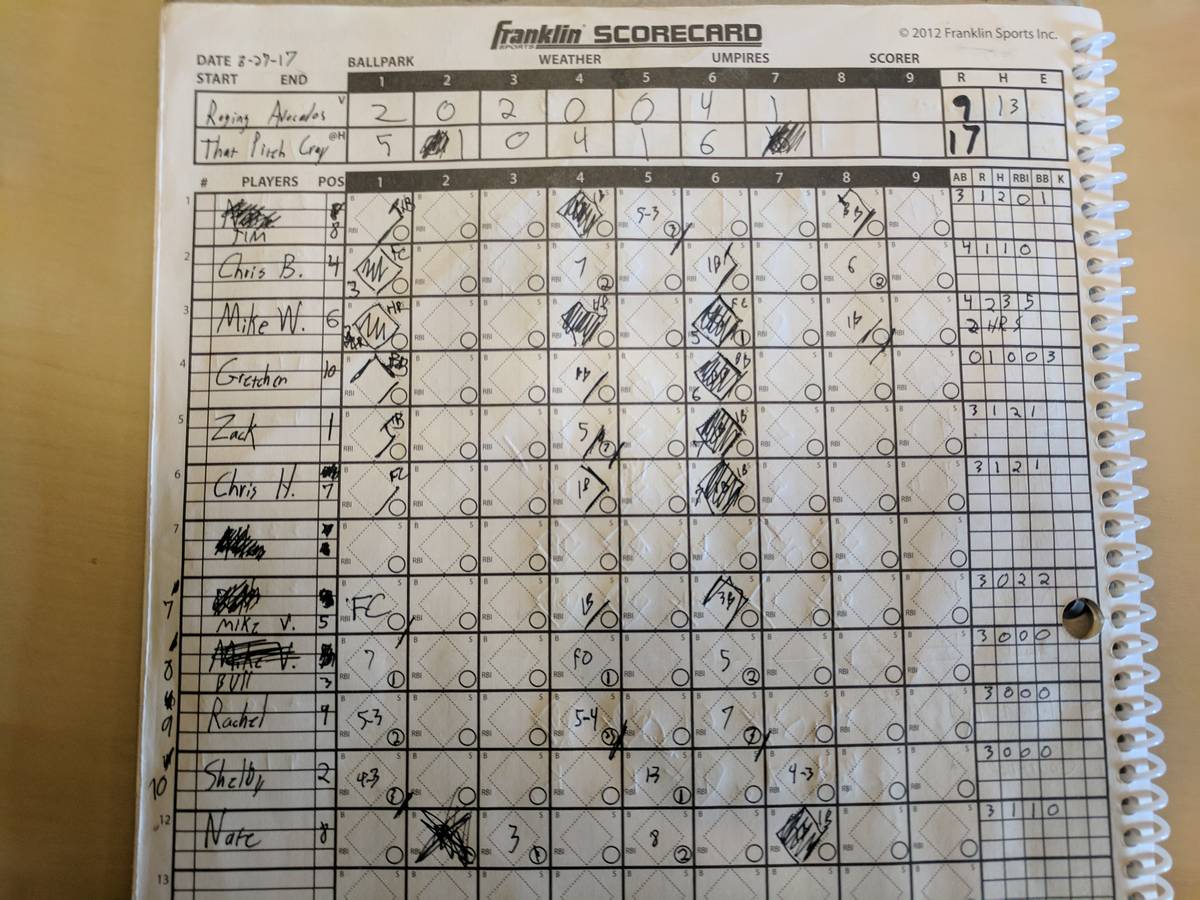 Franklin SPORTS SCORECARD
© 2012 Franklin Sports Inc.
DATE 8-27-17 BALLPARK WEATHER UMPIRES SCORER
START END 1 2 3 4 5 6 7 8 9 R H E
Raging Avocados V 2 0 2 0 0 4 1 9 13
That Pitch Cray @H 5 1 0 4 1 6 17
# PLAYERS POS 1 2 3 4 5 6 7 8 9 AB R H RBI BB K
1 JIM 8 1B 1B 5-3 2 3B 3 1 2 0 1
2 Chris B. 4 FC 3 7 2 1B 6 2 4 1 1 0
3 Mike W. 6 HR HR FC 5 1 1B 4 2 3 5
2 HRS
4 Gretchen 10 BB BB BB 6 0 1 0 0 3
5 Zack 1 1B 5 2 1B 3 1 2 1
6 Chris H. 7 FC 1B 1B 3 1 2 1
7
7 Mike V. 5 FC 1B 3B 3 0 2 2
8 Bull 3 7 1 FO 1 5 2 3 0 0 0
9 Rachel 9 5-3 2 5-4 7 3 0 0 0
10 Shelby 2 4-3 13 1 4-3 3 0 0 0
12 Nate 8 3 1 8 2 1B 3 1 1 0
13